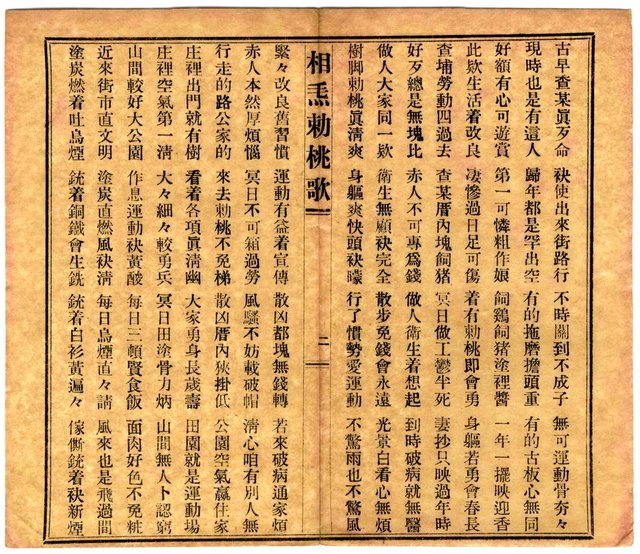 古早查某眞歹命 袂使出來街路行 不時關到不成子 無可運動骨夯々
現時也是有這人 歸年都是罕出空 有的拖磨擔頭重 有的古板心無同
好額有心可遊賞 第一可憐粗作娘 飼鷄飼猪塗裡醬 一年一擺映迎香
此欵生活着改良 凄慘過日足可傷 着有勅桃即會勇 身軀若勇會春長
查埔勞動四過去 查某厝內塊飼猪 冥日做工鬱半死 妻抄只映過年時
好歹總是無塊比 赤人不可專為錢 做人衛生着想起 到時破病就無醫
做人大家同一欵 衛生無顧袂完全 散步免錢會永遠 光景白看心無煩
樹脚勅桃眞清爽 身軀爽快頭袂矇 行了慣勢愛運動 不驚雨也不驚風
相𤆬勅桃歌 二
緊々改良舊習慣 運動有益着宣傳 散凶都塊無錢轉 若來破病通家煩
赤人本然厚煩惱 冥日不可箱過勞 風騷不妨載破帽 淸心咱有別人無
行走的路公家的 來去勅桃不免梯 散凶厝內狹掛低 公園空氣贏住家
庄裡出門就有樹 看着各項眞淸幽 大家勇身長歲壽 田園就是運動場
庄裡空氣第一淸 大々細々較勇兵 冥日田塗骨力炳 山間無人卜認窮
山間較好大公園 作息運動袂黃酸 每日三頓賢食飯 面肉好色不免粧
近來街市直文明 塗炭直燃風袂淸 每日烏煙直々請 風來也是飛過間
塗炭燃着吐烏煙 銃着銅鐵會生銑 銃着白衫黃遍々 傢撕銃着袂新煙